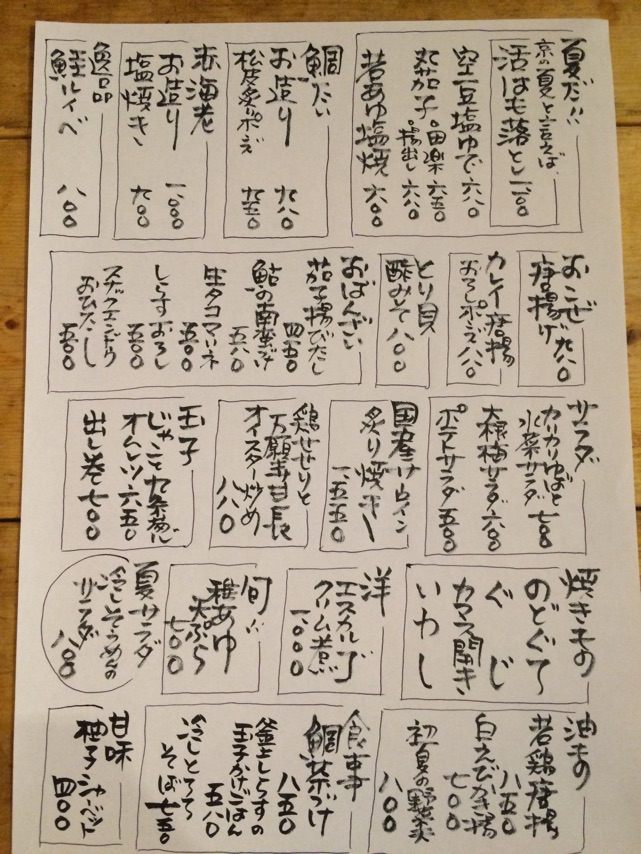 夏だ!!
京の夏と言えば、
活はも落とし 一二〇〇
空豆塩ゆで 六八〇
丸茄子・田楽 六五〇
・揚出し 六八〇
若あゆ塩焼 六〇〇
鯛だい
お造り 九八〇
松皮炙りポン酢 九五〇
赤海老
お造り 一〇〇〇
塩焼き 九〇〇
逸品
鮭ルイベ 八〇〇
おこぜ
唐揚げ 九八〇
カレイ唐揚
おろしポン酢 八八〇
とり貝
酢みそ 八〇〇
おばんざい
茄子揚げびたし 四五〇
鮎の南蛮漬け 五八〇
生タコマリネ 五五〇
しらすおろし 五〇〇
スナックエンドウ
おひたし 五〇〇
サラダ
カリカリゆばと
水菜サラダ 七八〇
大根梅サラダ 六八〇
ポテトサラダ 五八〇
国産サーロイン
炙り焼き 一五五〇
鶏せせりと
万願寺甘長
オイスター炒め 八八〇
玉子
じゃこと九条葱の
オムレツ 六五〇
出し巻 七〇〇
焼きもの
のどぐろ
ぐじ
カマス開き
いわし
洋
エスカルゴ
クリーム煮 一〇〇〇
旬!!
稚あゆ
天ぷら 七〇〇
夏サラダ
冷しそうめんの
サラダ 八〇〇
油もの
若鶏唐揚 八五〇
白えびかき揚 七〇〇
初夏の野菜天 八〇〇
食事
鯛茶づけ 八五〇
釜上しらすの
玉子かけごはん 五八〇
冷しとろろ
そば 七五〇
甘味
柚子シャーベット 四〇〇